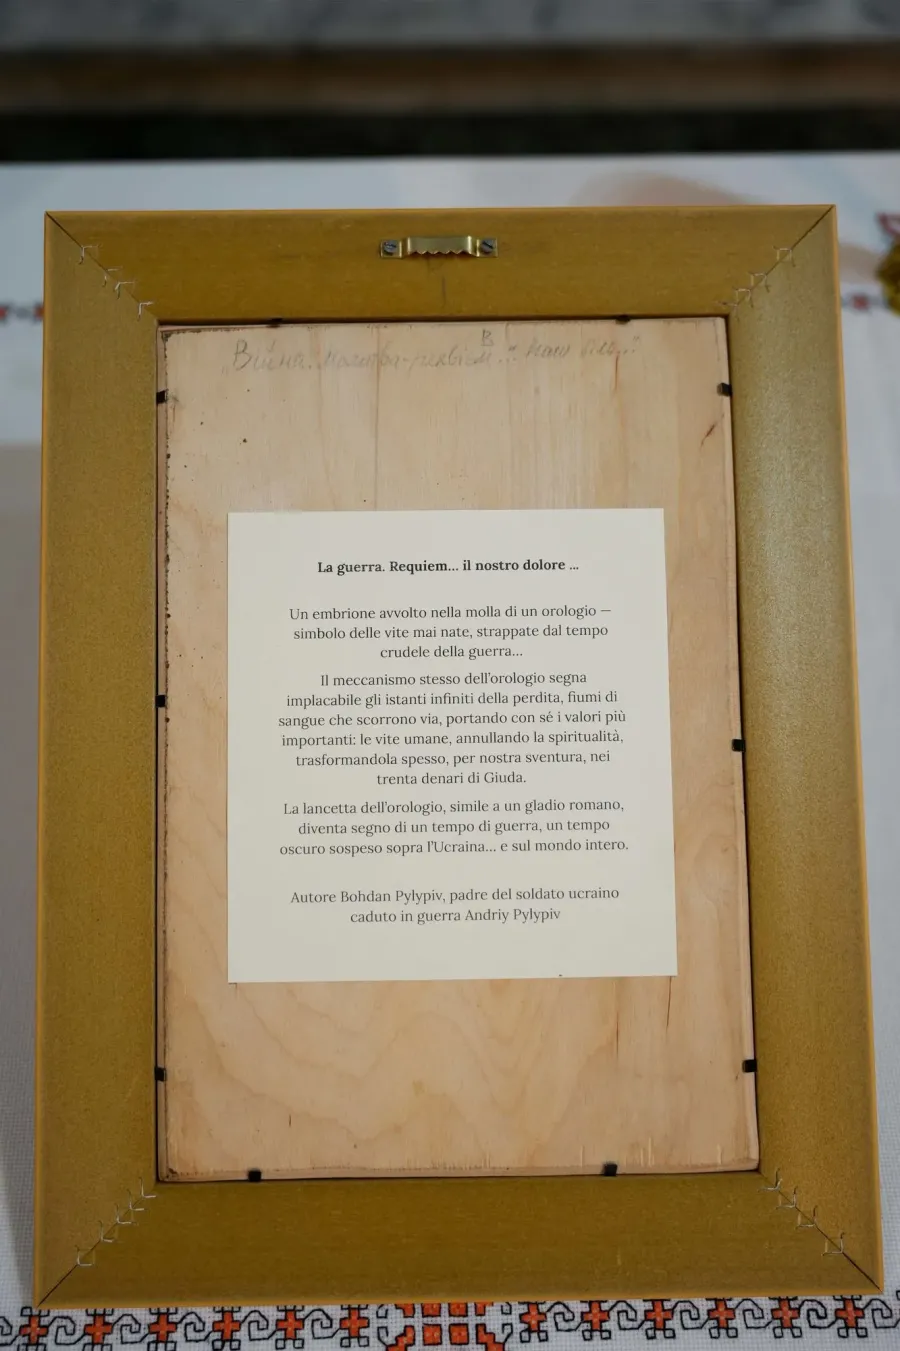 „Війна. Молитва-реквієм..." наш біль..."
La guerra. Requiem... il nostro dolore ...
Un embrione avvolto nella molla di un orologio —
simbolo delle vite mai nate, strappate dal tempo
crudele della guerra...
Il meccanismo stesso dell'orologio segna
implacabile gli istanti infiniti della perdita, fiumi di
sangue che scorrono via, portando con sé i valori più
importanti: le vite umane, annullando la spiritualità,
trasformandola spesso, per nostra sventura, nei
trenta denari di Giuda.
La lancetta dell'orologio, simile a un gladio romano,
diventa segno di un tempo di guerra, un tempo
oscuro sospeso sopra l'Ucraina... e sul mondo intero.
Autore Bohdan Pylypiv, padre del soldato ucraino
caduto in guerra Andriy Pylypiv